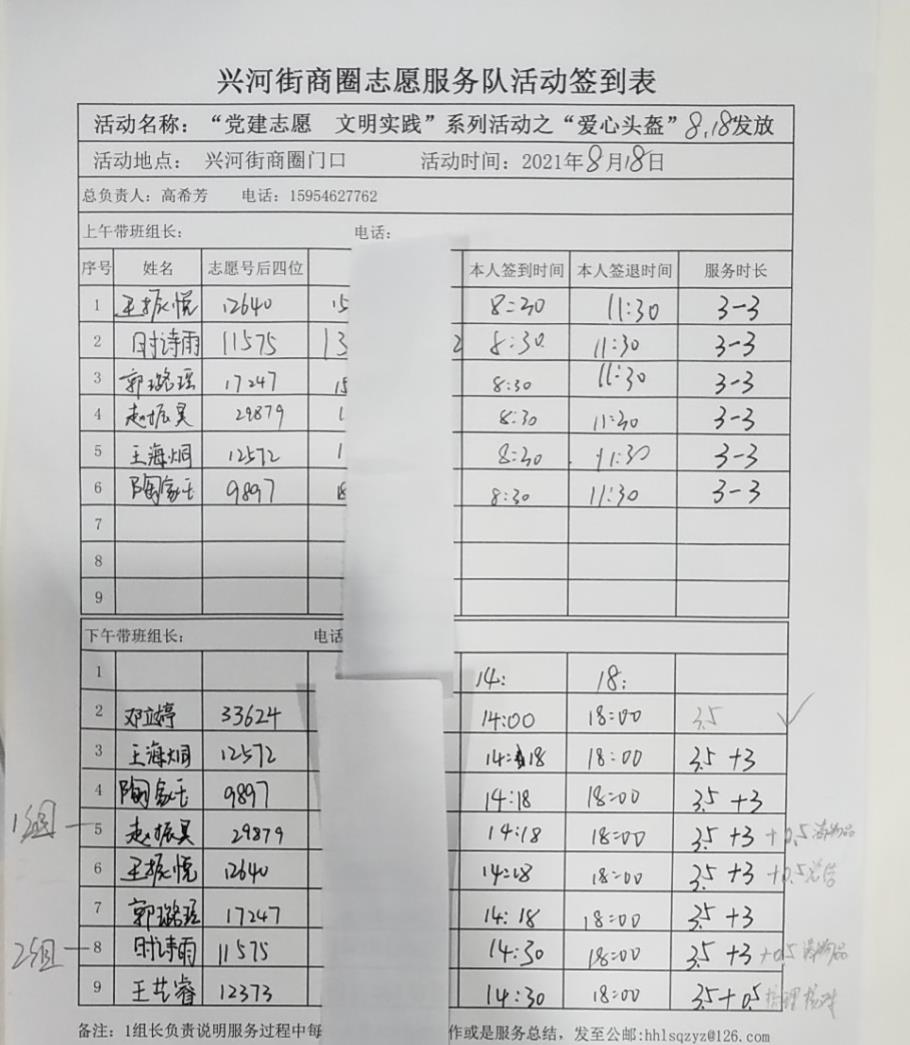 兴河街商圈志愿服务队活动签到表
活动名称：“党建志愿 文明实践”系列活动之“爱心头盔”8.18发放
活动地点： 兴河街商圈门口 活动时间：2021年8月18日
总负责人：高希芳 电话：15954627762
上午带班组长： 电话：
序号 姓名 志愿号后四位 本人签到时间 本人签退时间 服务时长
1 王振悦 12640 15 8:30 11:30 3-3
2 时诗雨 11575 13 2 8:30 11:30 3-3
3 郭璐瑶 17247 15 8:30 11:30 3-3
4 赵振昊 29879 1 8:30 11:30 3-3
5 王海炯 12572 1 8:30 11:30 3-3
6 陶家玉 9897 18 8:30 11:30 3-3
7
8
9
下午带班组长： 电话
1 14: 18:
2 邓立婷 33624 14:00 18:00 3.5 ✓
3 王海炯 12572 14:18 18:00 3.5 +3
4 陶家玉 9897 14:18 18:00 3.5 +3
1组 5 赵振昊 29879 14:18 18:00 3.5 +3 +0.5 物品
6 王振悦 12640 14:18 18:00 3.5 +3 +0.5
7 郭璐瑶 17247 14:18 18:00 3.5 +3
2组 8 时诗雨 11575 14:30 18:00 3.5 +3 +0.5 物品
9 王艺睿 12373 14:30 18:00 3.5+0.5
备注：1组长负责说明服务过程中每 作或是服务总结，发至公邮:hhlsqzyz@126.com